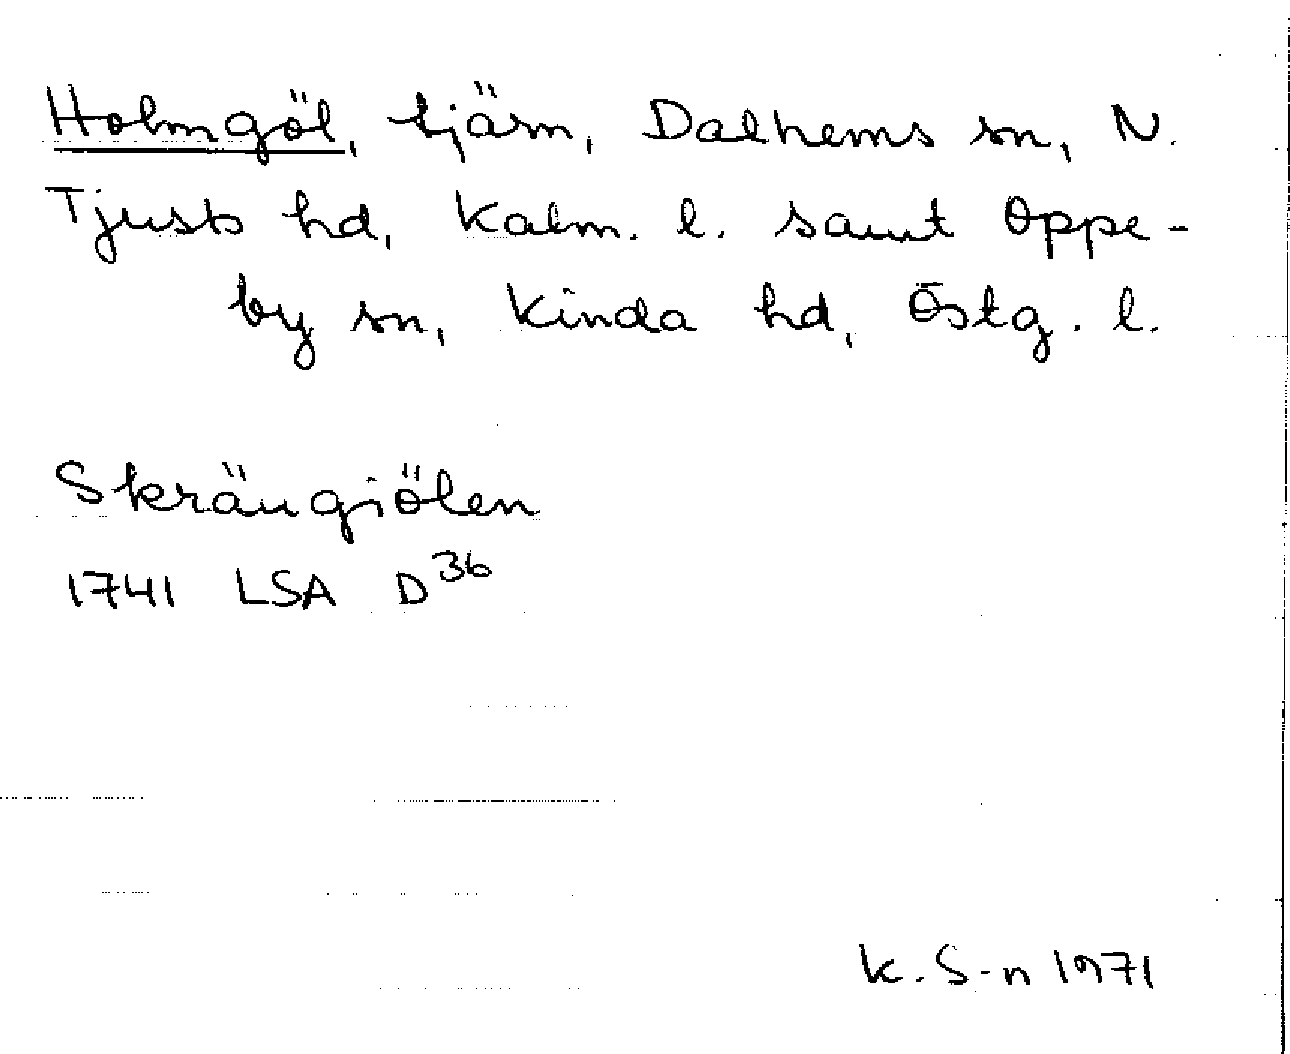 Holmgöl, tjärn, Dalhems sn, N.
Tjusts hd, Kalm. l. samt Oppe-
by sn, Kinda hd, Östg. l.
Skrängiölen
1741 LSA D36
K. S-n 1971